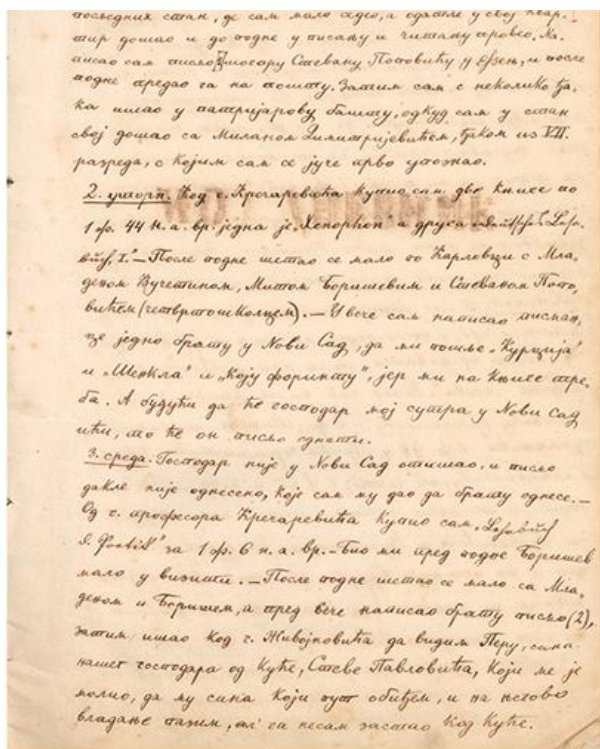 последних стан, де сам мало седео, а одатле у свој квар-
тир дошао и до подне у писању и читању провео. На-
писао сам писмо Стевану Поповићу у и после
подне предао га на пошту. Затим сам с неколико ђа-
ка ишао у патријарову башту, одкуд сам у стан
свој дошао са Миланом Димитријевићем, ђаком из VII.
разреда, с којим сам се јуче прво упознао.
2. уторн. Код г. Кречаревића купио сам две књиге по
1 ф. 44 н. а. вр. једна је „Xenophon“ а друга
I.“ — После подне шетао се мало по Карловци с Мла-
деном Вучетином, Митом Боришевим и Стеваном Попо-
вићем (четвртошколцем). — У вече сам написао писман-
це једно брату у Нови Сад, да ми пошље „Курција“
и „Шенкла“ и „коју форинту“, јер ми на књиге тре-
ба. А будући да ће господар мој сутра у Нови Сад
ићи, то ће он писмо однети.
3. среда. Господар није у Нови Сад отишао, и писмо
дакле није однесено, које сам му дао да брату однесе. —
Од г. професора Кречаревића купио сам
за 1 ф. 6 н. а. вр. — Био ми пред подне Боришев
мало у визити. — После подне шетао се мало са Мла-
деном и Боришем, а пред вече написао брату писмо (2),
затим ишао код г. Живојновића да видим Перу, сина
нашег господара од куће, Стеве Павловића, који ме је
молио, да му сина који пут обиђем, и на његово
владање пазим, ал' га несам застао код куће.